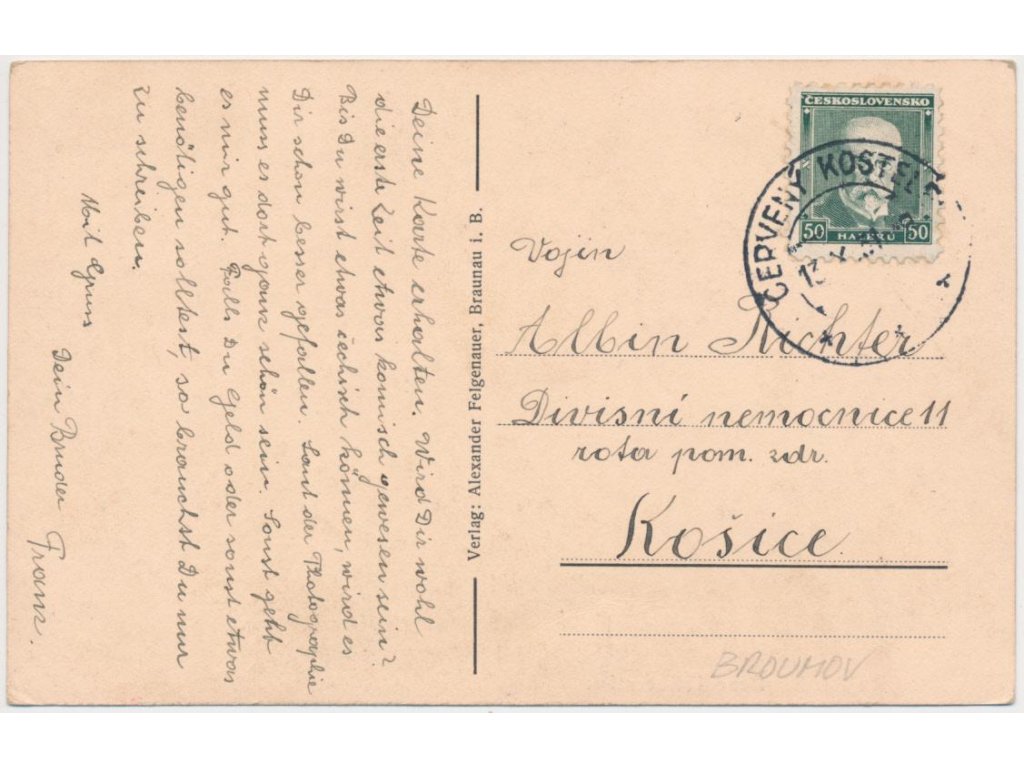 Deine Karte erhalten. Wird Dir wohl
die erste Zeit etwas komisch gewesen sein?
Bis Du wirst etwas čechisch können, wird es
Dir schon besser gefallen. Laut der Photographie
muss es dort ganz schön sein. Sonst geht
es mir gut. Falls Du Geld oder sonst etwas
benötigen solltest, so brauchst Du nur
zu schreiben.
Mit Gruss
Dein Bruder Franz.
Verlag: Alexander Felgenauer, Braunau i. B.
ČESKOSLOVENSKO
50 HALÉŘŮ 50
ČERVENÝ KOSTELEC
13 X
Vojín
Albin Richter
Divisní nemocnice 11
rota pom. zdr.
Košice.
BROUMOV